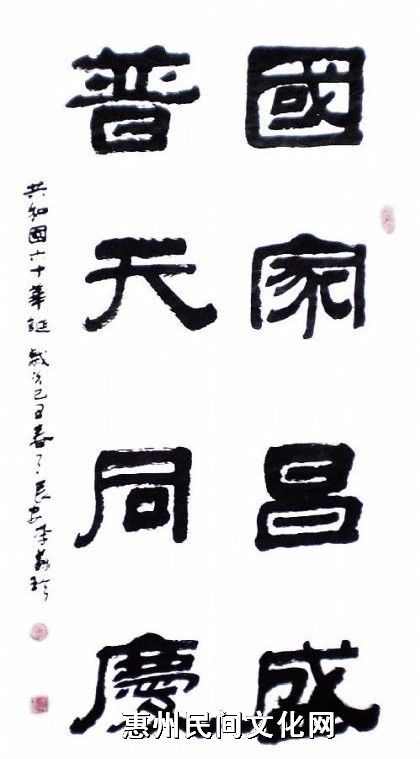 國家昌盛
普天同慶
共和國六十華誕 歲次己丑春 長安李
惠州民间文化网